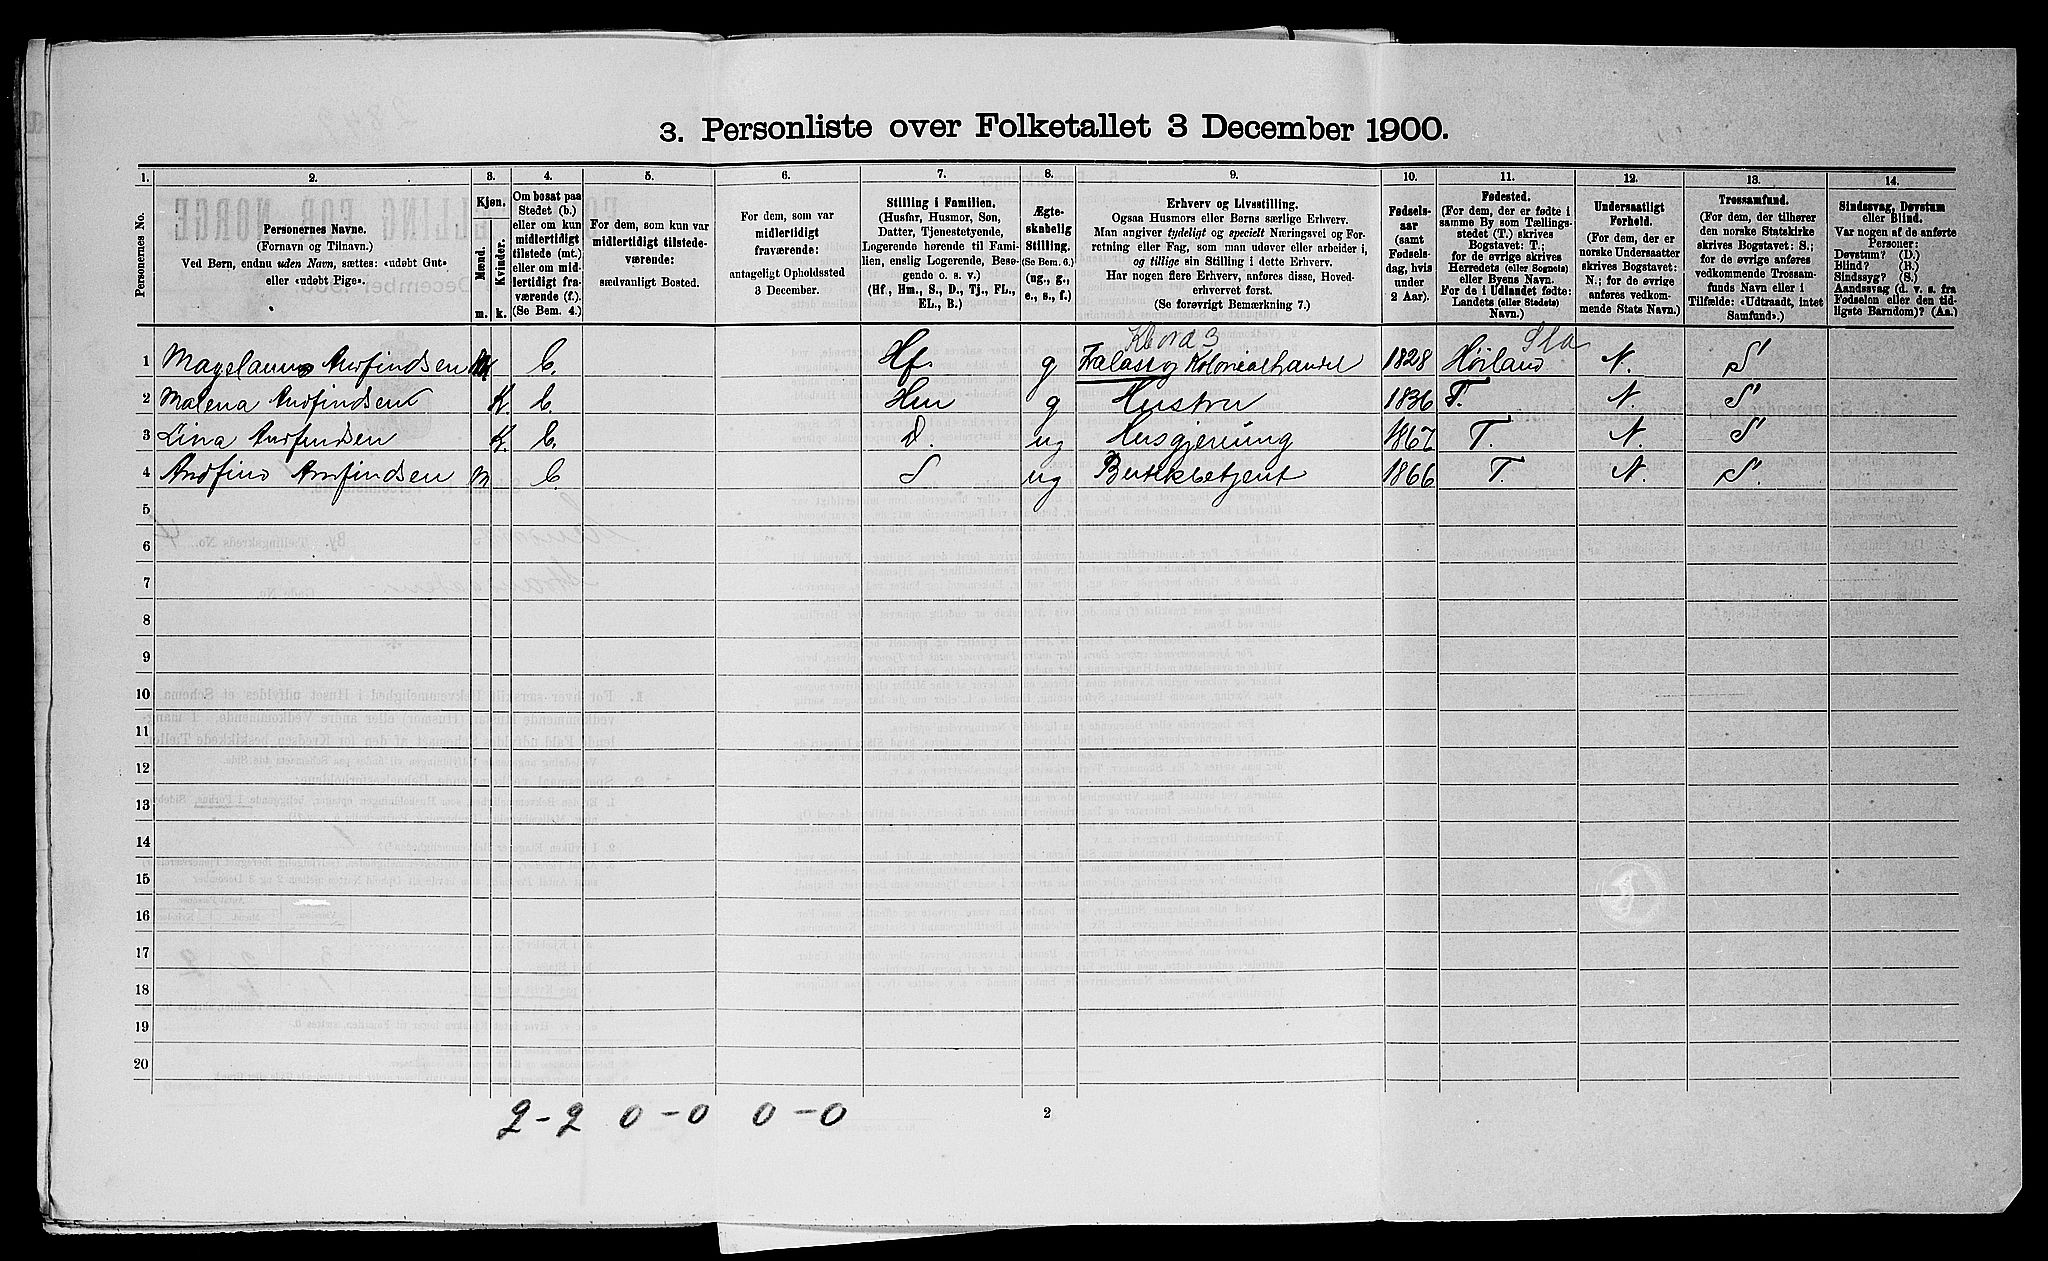 3. Personliste over Folketallet 3 December 1900.
1. 2. 3. 4. 5. 6. 7. 8. 9. 10. 11. 12. 13. 14.
Personernes No.
Personernes Navne.
(Fornavn og Tilnavn.)
Ved Børn, endnu uden Navn, sættes: «udøbt Gut»
eller «udøbt Pige».
Kjøn.
Mænd.
Kvinder.
m. k.
Om bosat paa
Stedet (b.)
eller om kun
midlertidigt
tilstede (mt.)
eller om mid-
lertidigt fra-
værende (f.).
(Se Bem. 4.)
For dem, som kun var
midlertidigt tilstede-
værende:
sædvanligt Bosted.
For dem, som var
midlertidigt
fraværende:
antageligt Opholdssted
3 December.
Stilling i Familien.
(Husfar, Husmor, Søn,
Datter, Tjenestetyende,
Logerende hørende til Fami-
lien, enslig Logerende, Besø-
gende o. s. v.)
(Hf., Hm., S., D., Tj., FL.,
EL., B.)
Ægte-
skabelig
Stilling.
(Se Bem. 6.)
(ug., g.,
e., s., f.)
Erhverv og Livsstilling.
Ogsaa Husmors eller Børns særlige Erhverv.
Man angiver tydeligt og specielt Næringsvei og For-
retning eller Fag, som man udøver eller arbeider i,
og tillige sin Stilling i dette Erhverv.
Har nogen flere Erhverv, anføres disse, Hoved-
erhvervet først.
(Se forøvrigt Bemærkning 7.)
Fødsels-
aar
(samt
Fødsels-
dag, hvis
under
2 Aar).
Fødested.
(For dem, der er fødte i
samme By som Tællings-
stedet (T.) skrives
Bogstavet: T.;
for de øvrige skrives
Herredets (eller Sognets)
eller Byens Navn.
For de i Udlandet fødte:
Landets (eller Stedets)
Navn.)
Undersaatligt
Forhold.
(For dem, der er
norske Undersaatter
skrives Bogstavet:
N.; for de øvrige
anføres vedkom-
mende Stats Navn.)
Trossamfund.
(For dem, der tilhører
den norske Statskirke
skrives Bogstavet: S.;
for de øvrige anføres
vedkommende Trossam-
funds Navn eller i
Tilfælde: «Udtraadt, intet
Samfund».)
Sindssvag, Døvstum
eller Blind.
Var nogen af de anførte
Personer:
Døvstum? (D.)
Blind? (B.)
Sindssyg? (S.)
Aandssvag (d. v. s. fra
Fødselen eller den tid-
ligste Barndom)? (Aa.)
1 Magelaunus Anfindsen M b. Hf. g Kolonialhandel 1828 Høiland N. S
2 Malena Anfindsen K. b. Hm g Hustru 1836 T. N. S
3 Lina Anfindsen K. b. d. ug Husgjerning 1867 T. N. S
4 Andfind Anfindsen M b. S ug Butikbetjent 1866 T. N. S.
5
6
7
8
9
10
11
12
13
14
15
16
17
18
19
20
2-2 0-0 0-0
2